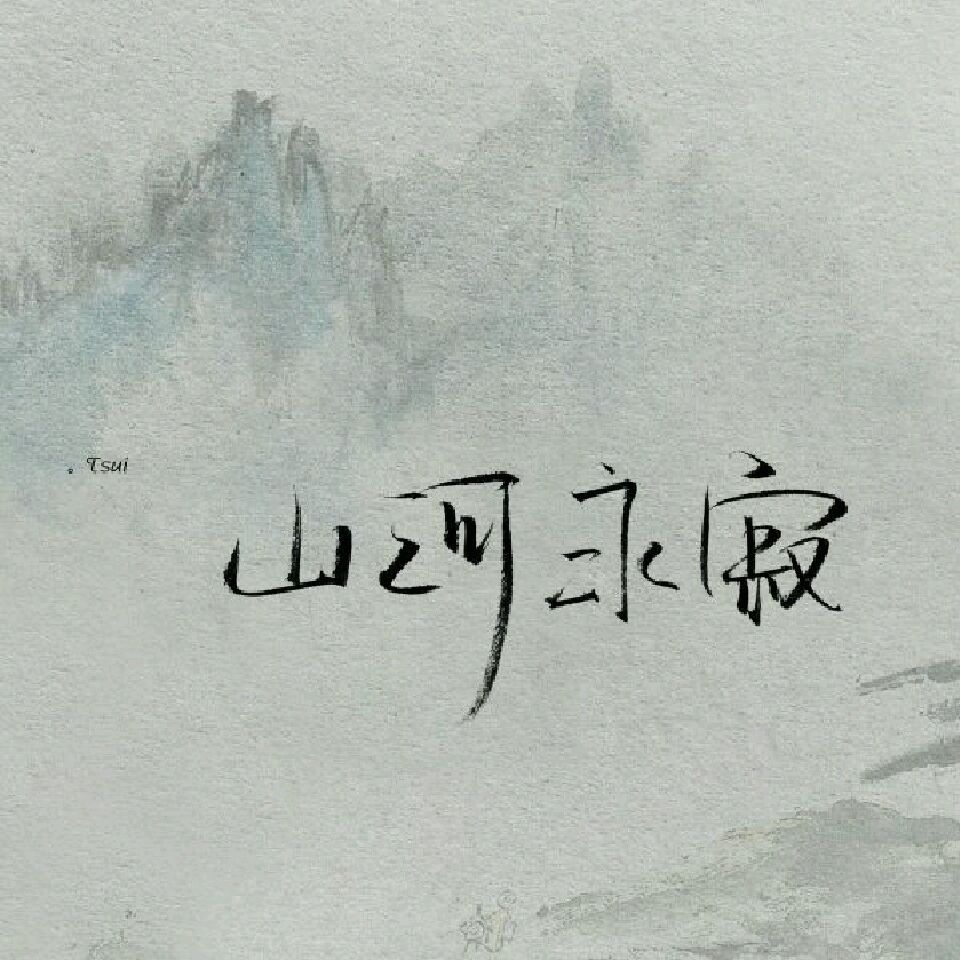 。Tsui
山河永寂